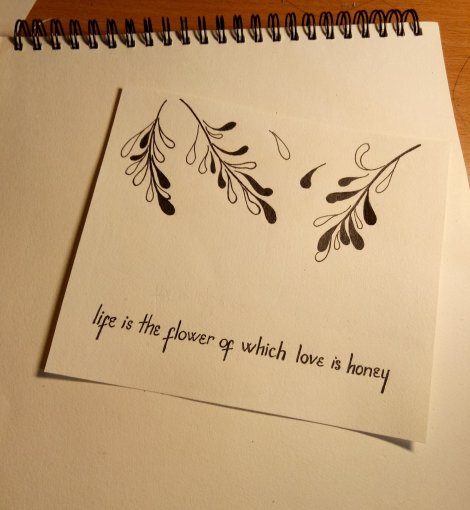 life is the flower of which love is honey